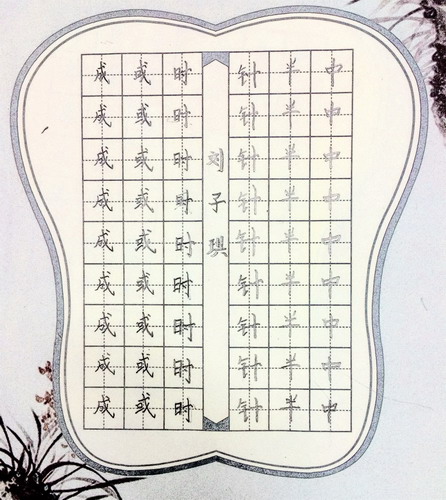 中中中中中中中中中
半半半半半半半半半
针针针针针针针针针
刘子琪
时时时时时时时时时
或或或或或或或或或
成成成成成成成成成